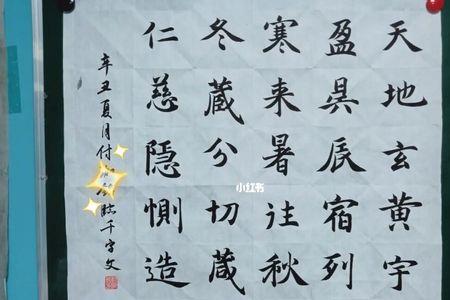 天地玄黄宇
盈昃辰宿列
寒来暑往秋
冬蔵分切葴
仁慈隱惻造
辛丑夏月付 千字文
小红书